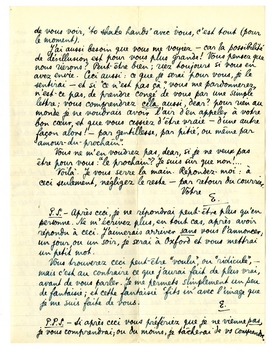 de vous voir, "to shake hands" avec vous, c'est tout (pour
le moment).
J'ai aussi besoin que vous me voyez - car la possibilité
de désillusion est pour vous plus grande! Vous pensez que
nous serons? Peut-être bien; riez toujours si vous en
avez envie. Ceci aussi: ce que je serai pour vous, je le
sentirai - et si "ce n'est pas ça", vous me pardonnerez,
n'est-ce pas, de prendre congé de vous par une simple
lettre; vous comprendrez cela aussi, dear? pour rien au
monde je ne voudrais avoir l'air d'en appeler à votre
bon cœur, et que vous cessiez d'être vrai - d'une autre
façon alors! - par gentillesse, par pitié, ou même par
"amour-du-prochain".
Vous ne m'en voudrez pas, dear, si je ne veux pas
être pour vous "le prochain"? Je suis sûr que non!...
Voilà. Je vous serre la main. Répondez-moi: à
ceci seulement, négligez le reste - par retour du courrier.
Votre
E.
P.S. - Après ceci, je ne répondrai peut-être plus qu'en
personne. Ne m'écrivez plus, en tout cas, après avoir
répondu à ceci. J'aimerais arriver sans vous l'annoncer,
un jour, ou un soir, je serai à Oxford et vous mettrai
un petit mot.
Vous trouverez ceci peut-être "voulu", ou "ridicule", -
mais c'est au contraire ce que j'aurai fait de plus vrai,
avant de vous parler. Je me permets simplement un peu
de fantaisie; et cette fantaisie "fits in" avec l'image que
je me suis faite de vous.
E.
P.P.S. - Si après ceci vous préférez que je ne vienne pas,
je vous comprendrai; ou du moins, je tâcherai de vous comprendre.